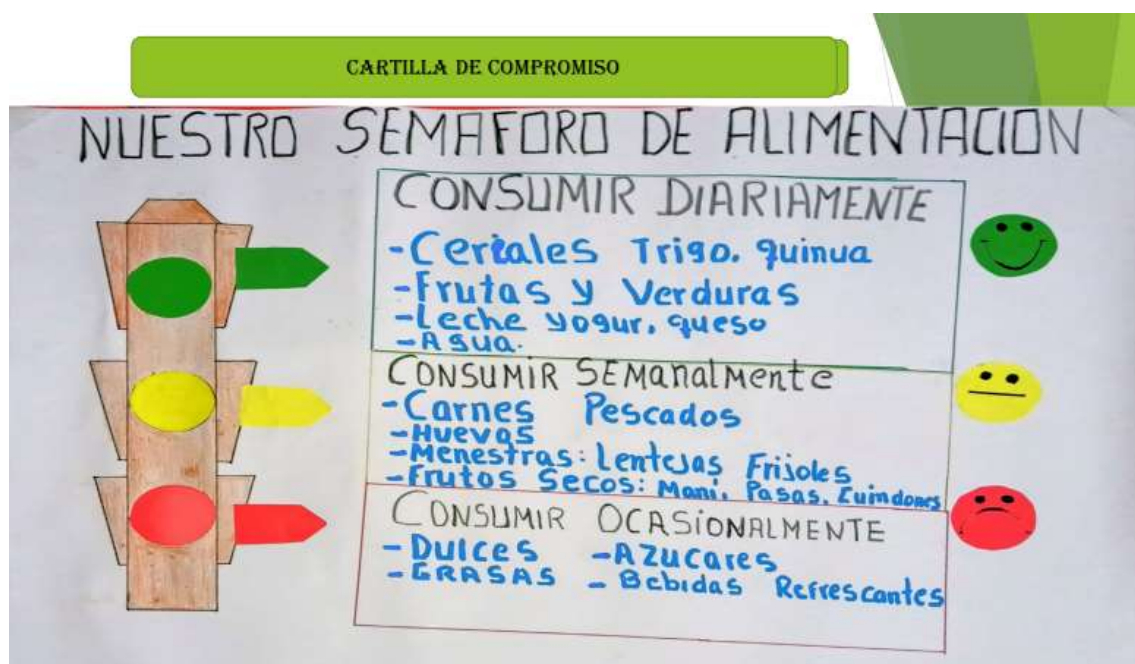 CARTILLA DE COMPROMISO
NUESTRO SEMAFORO DE ALIMENTACION
CONSUMIR DIARIAMENTE
-Ceriales Trigo. quinua
-Frutas y Verduras
-Leche yogur. queso
-Agua.
CONSUMIR SEManalMente
-Carnes Pescados
-Huevos
-Menestras: Lentejas Frijoles
-Frutos Secos: Mani. Pasas. Cuindones
CONSUMIR OCASIONALMENTE
-Dulces -AZucares
-GRASAS - Bebidas Refrescantes